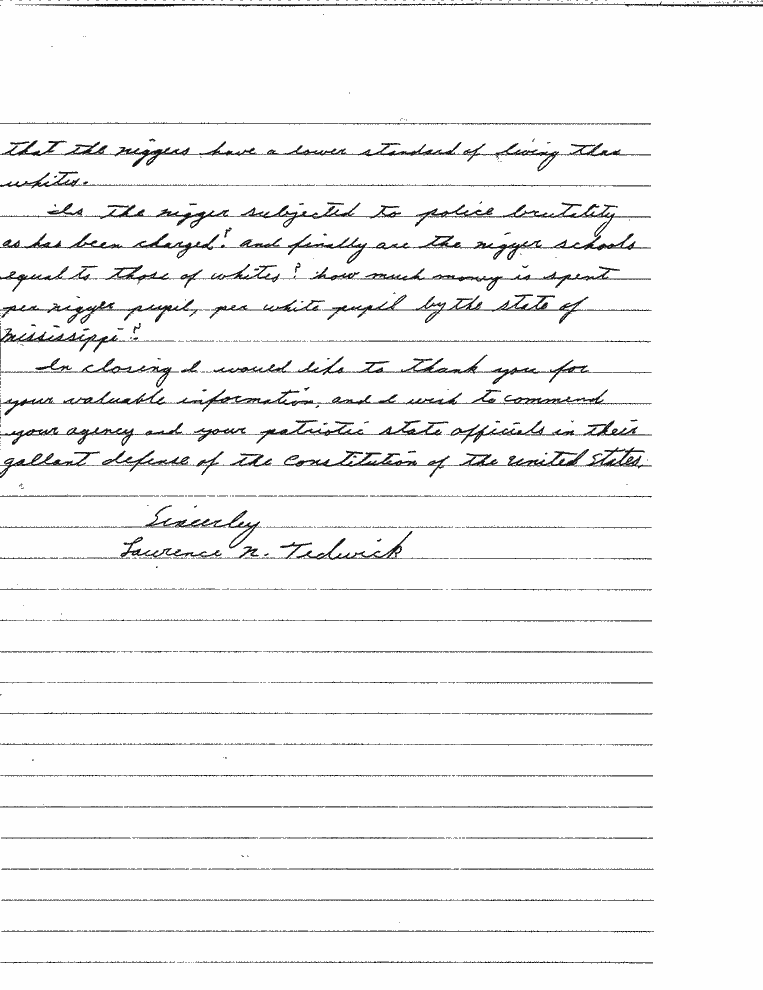 that the niggers have a lower standard of living than
whites.
Is the nigger subjected to police brutality
as has been charged? and finally are the nigger schools
equal to those of whites? how much money is spent
per nigger pupil, per white pupil by the state of
Mississippi?
In closing I would like to thank you for
your valuable information, and I wish to commend
your agency and your patriotic state officials in their
gallant defense of the Constitution of the United States.
Sincerley
Lawrence N. Tedwick